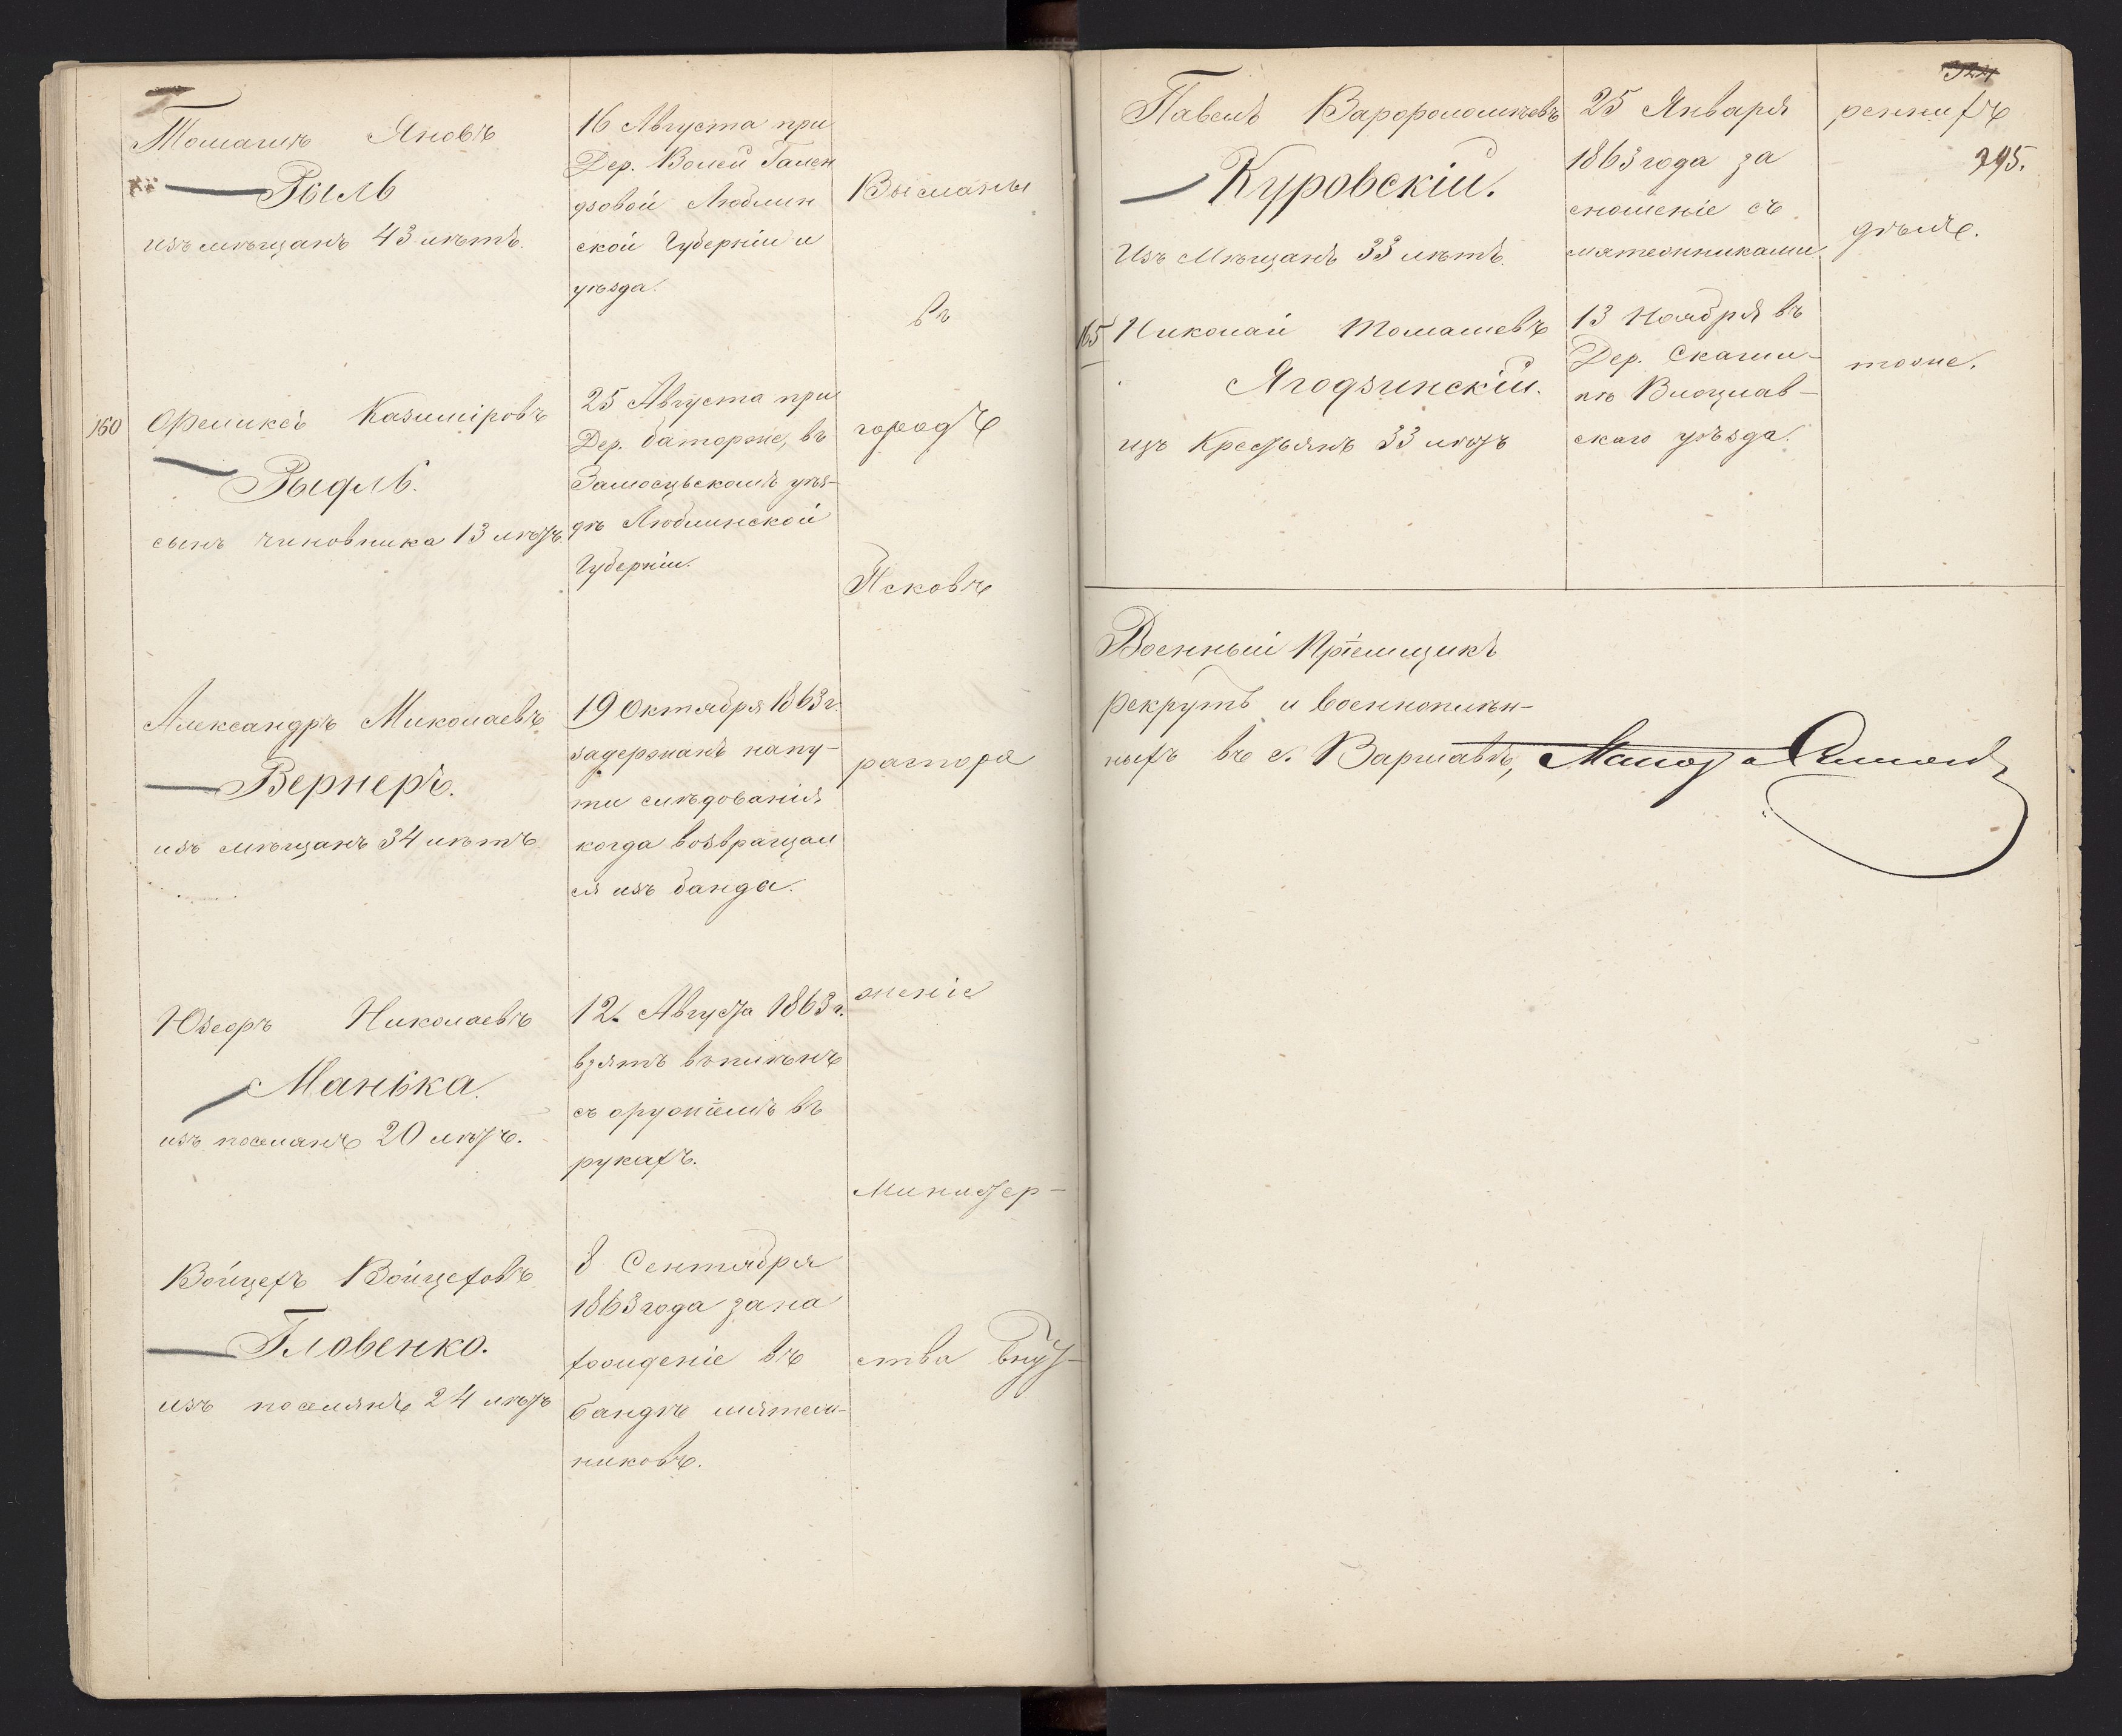 Томашъ Яновъ
Рыль
изъ мѣщанъ 43 лѣтъ.
16 Августа при
Дер. Волей Гален
дзовой Люблин
ской Губерніи и
уѣзда.
160
Феликсъ Казиміровъ
Рыдль.
сынъ чиновника 13 лѣтъ.
25 Августа при
Дер. Баторже, въ
Замосцьскомъ уѣз-
дѣ Люблинской
Губерніи.
Александръ Миколаевъ
Вернеръ.
изъ мѣщанъ 34 лѣтъ
19 Октября 1863 г.
задержанъ на пу-
ти слѣдованія
когда возвращал
ся изъ банда.
Юзефъ Николаевъ
Манька.
изъ поселянъ 20 лѣтъ.
12 Августа 1863 г.
взятъ въ плѣнъ
съ оружіемъ въ
рукахъ.
Войцехъ Войцеховъ
Гловенко.
изъ поселянъ 24 лѣтъ
8 Сентября
1863 года за на
хожденіе въ
бандѣ мятеж-
никовъ.
Высланы
въ
городъ
Псковъ
распоря
женіе
Министер-
ства Внут-
Павелъ Варфоломѣевъ
Куровскій.
Изъ Мѣщанъ 33 лѣтъ.
25 Января
1863 года за
сношеніе съ
мятежниками
реннихъ
295.
дѣлъ.
165
Николай Томашевъ
Ягодзинскій.
изъ Крестьянъ 33 лѣтъ
13 Ноября въ
Дер. Скаши-
нѣ Влоцлав-
скаго уѣзда.
тоже.
Военный Пріемщикъ
рекрутъ и военноплѣн-
ныхъ въ г. Варшавѣ, Маіоръ